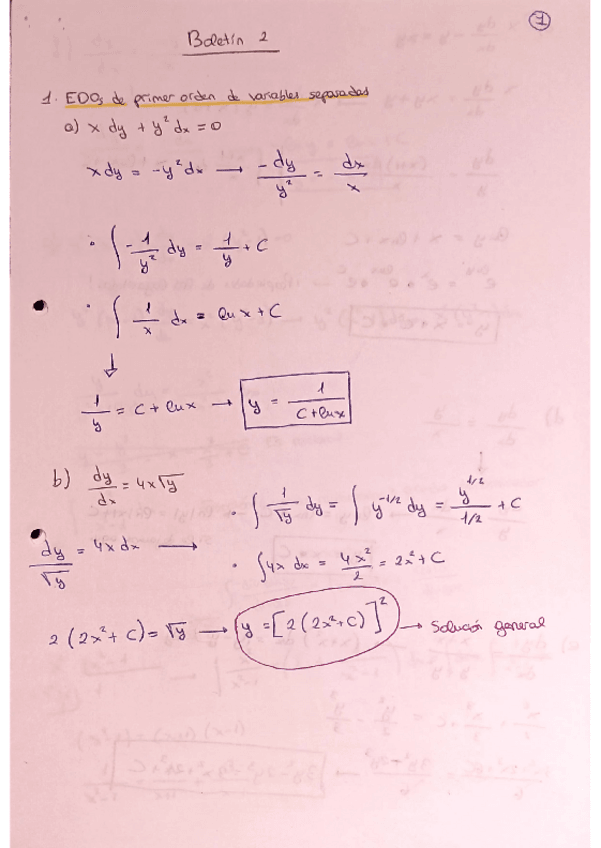 1
Boletín 2
1. EDOs de primer orden de variables separadas
a) x dy + y² dx = 0
x dy = -y² dx → -dy/y² = dx/x
· ∫ -1/y² dy = 1/y + C
· ∫ 1/x dx = ln x + C
↓
1/y = C + ln x → y = 1/(C + ln x)
b) dy/dx = 4x√y
· ∫ 1/√y dy = ∫ y^-1/2 dy = y^1/2 / 1/2 + C
dy/√y = 4x dx →
· ∫ 4x dx = 4x²/2 = 2x² + C
2(2x² + C) = √y → y = [2(2x² + C)]² → Solución general